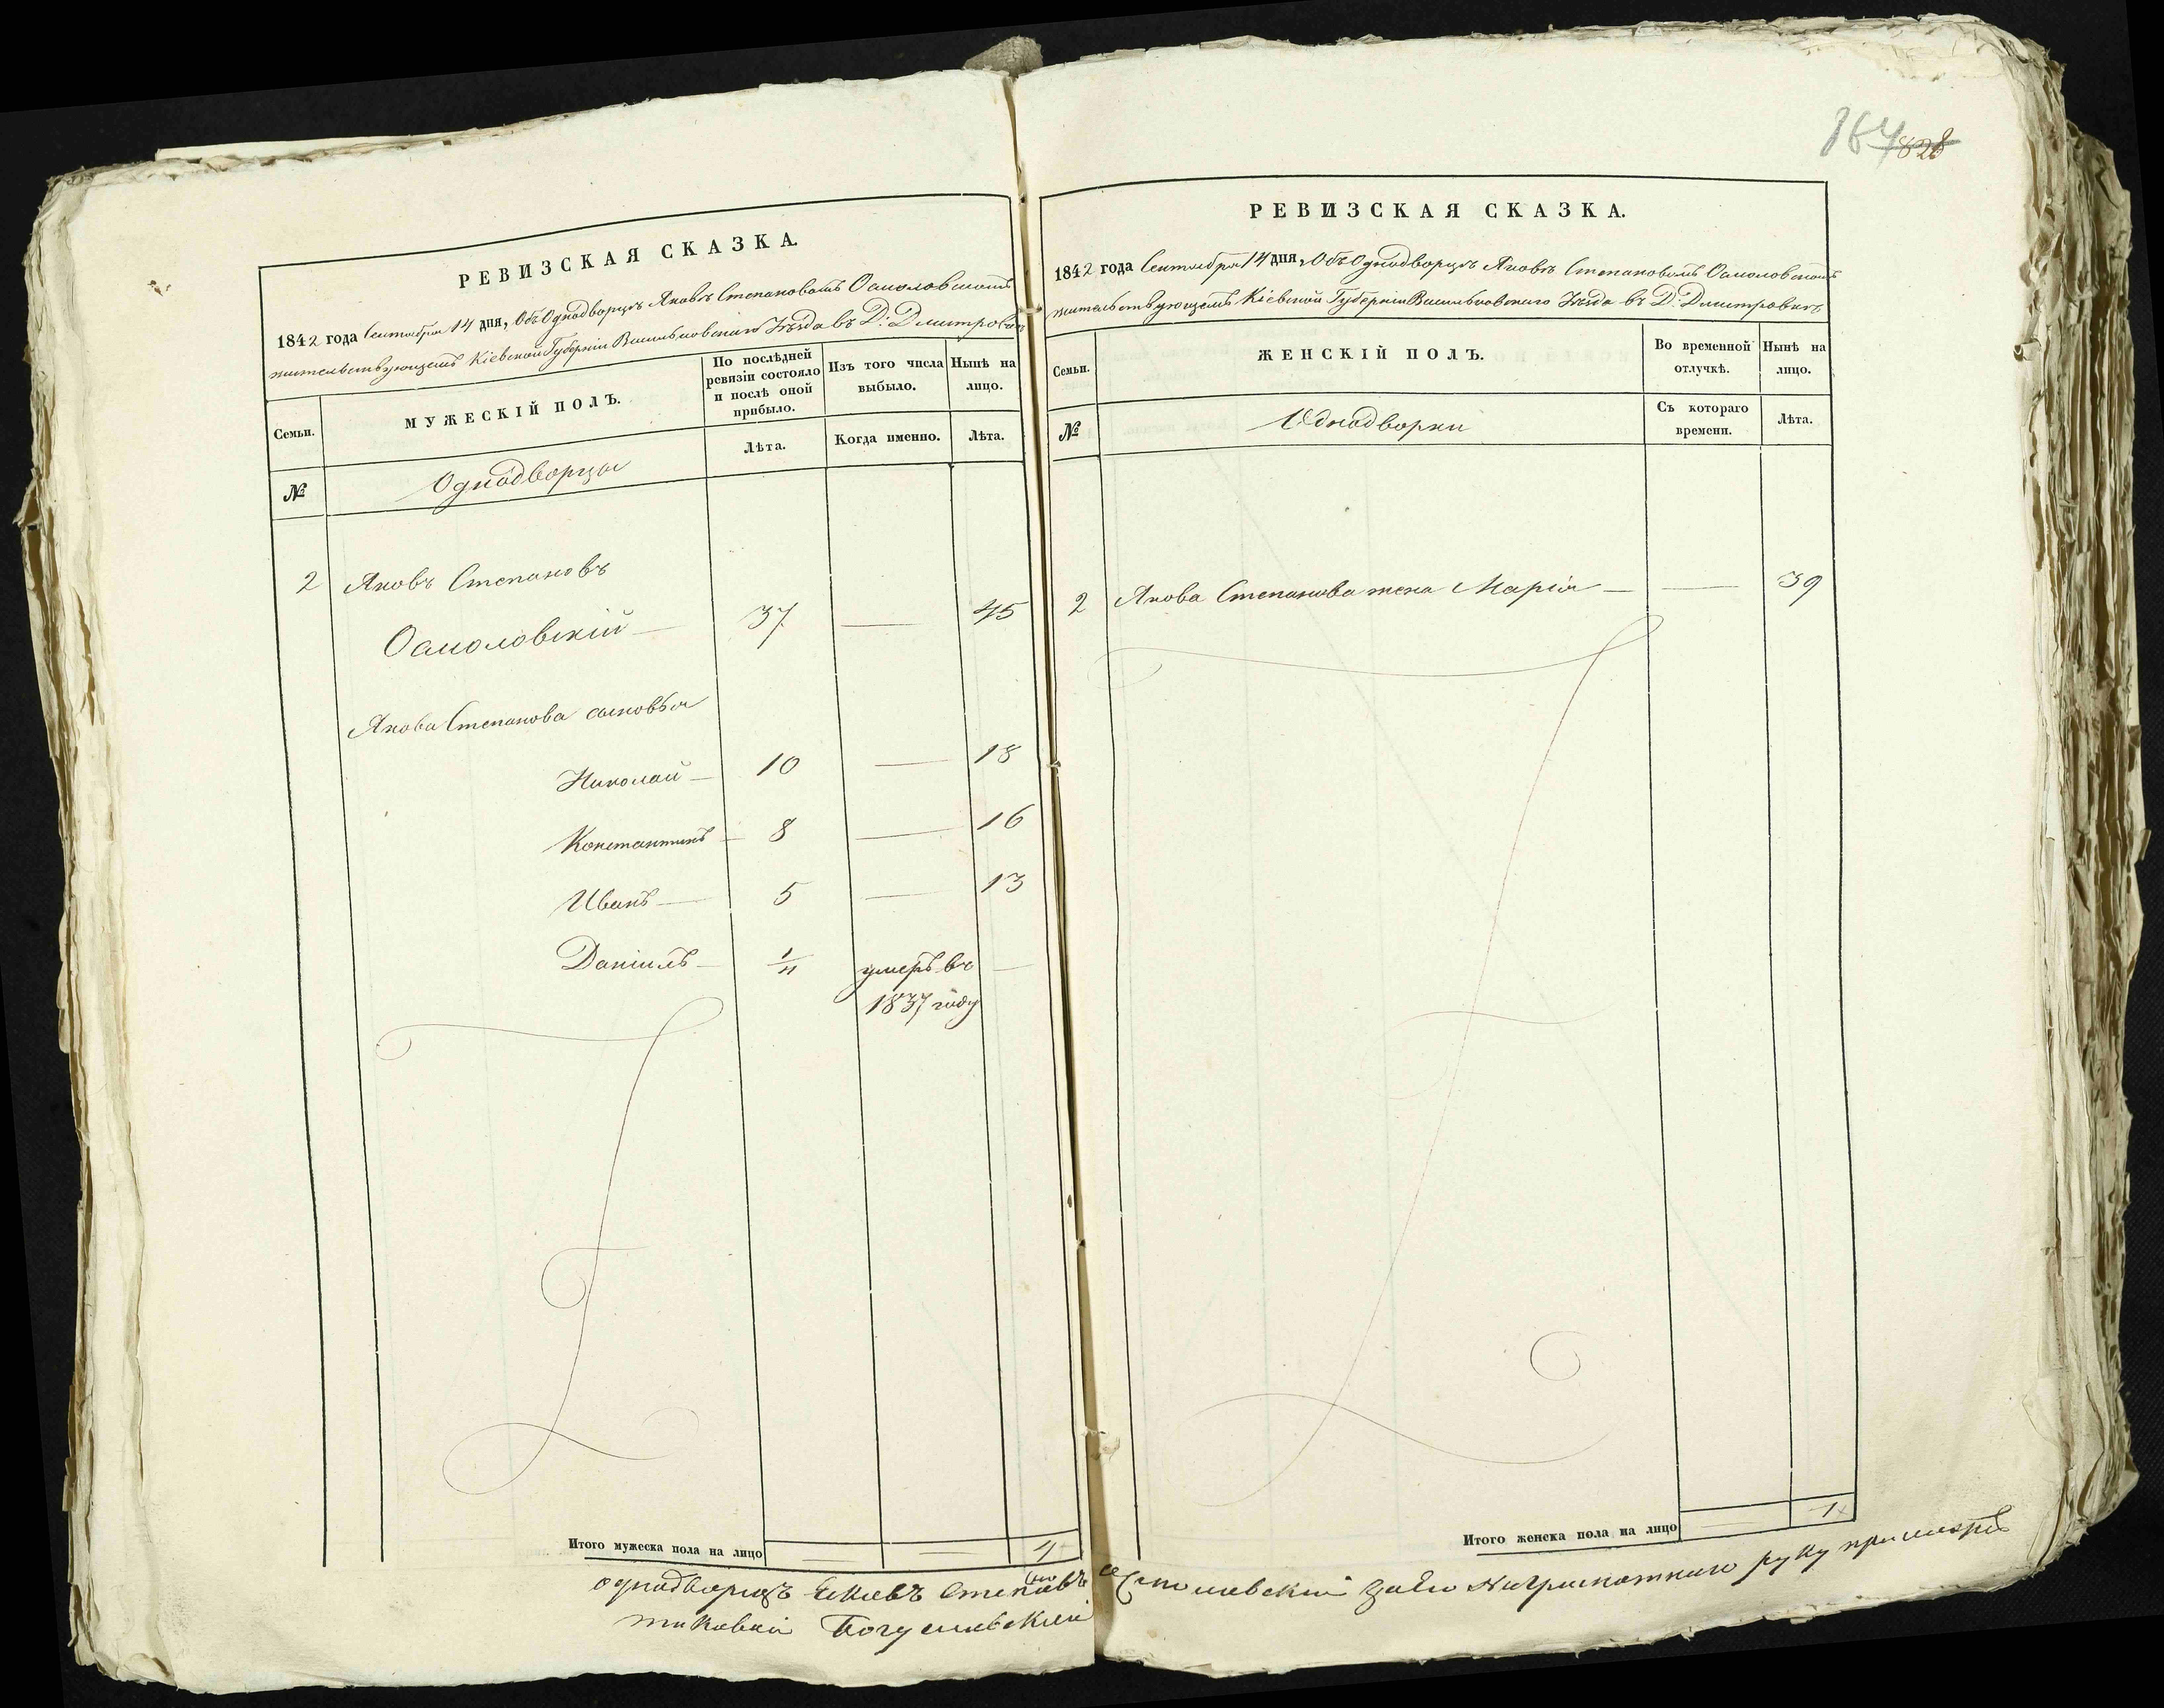 РЕВИЗСКАЯ СКАЗКА.
1842 года Сентября 14 дня, Объ Однодворцѣ Яковѣ Степановомъ Осмоловскомъ
жительствующемъ Кіевской Губерніи Васильковскаго Уѣзда въ Д: Дмитровкѣ
Семьи.
МУЖЕСКІЙ ПОЛЪ.
По послѣдней ревизіи состояло и послѣ оной прибыло.
Изъ того числа выбыло.
Нынѣ на лицо.
№
Однодворцы
Лѣта.
Когда именно.
Лѣта.
2 Яковъ Степановъ
Осмоловскій — 37 — 45
Якова Степанова сыновья
Николай — 10 — 18
Константинъ — 8 — 16
Иванъ — 5 — 13
Даніилъ — 1/11 умеръ въ —
1837 году
Итого мужеска пола на лицо — — 4
однодворецъ Яковъ Степановъ
Богуславскій
867 828
РЕВИЗСКАЯ СКАЗКА.
1842 года Сентября 14 дня, Объ Однодворцѣ Яковѣ Степановомъ Осмоловскомъ
жительствующемъ Кіевской Губерніи Васильковскаго Уѣзда въ Д: Дмитровкѣ
Семьи.
ЖЕНСКІЙ ПОЛЪ.
Во временной отлучкѣ.
Нынѣ на лицо.
№
Однодворки
Съ котораго времени.
Лѣта.
2 Якова Степанова жена Марія — — 39
Итого женска пола на лицо — 1
руку приложилъ